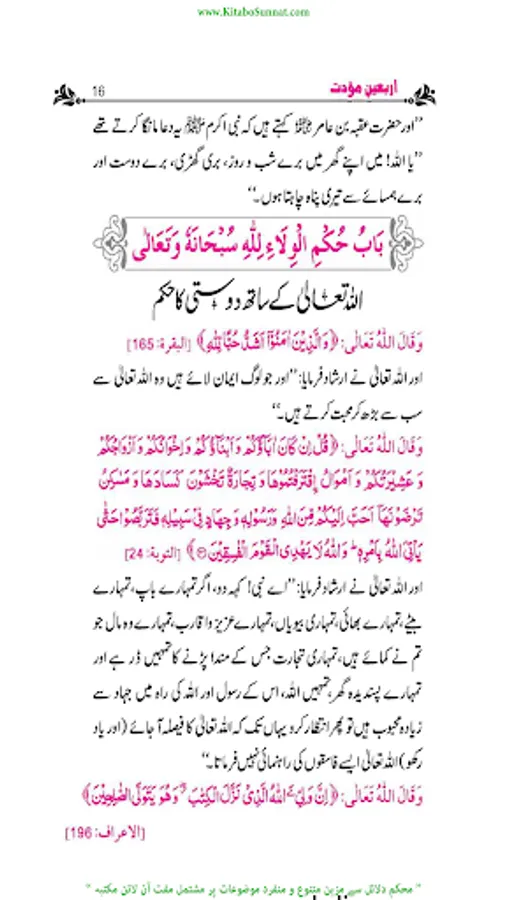 www.KitaboSunnat.com
اربعینِ مؤدت 16
’’اور حضرت عقبہ بن عامر ﷜ کہتے ہیں کہ نبی اکرم ﷺ یہ دعا مانگا کرتے تھے
’’یا اللہ! میں اپنے گھر میں برے شب و روز، بری گھڑی، برے دوست اور
برے ہمسائے سے تیری پناہ چاہتا ہوں۔‘‘
بَابُ حُكْمِ الْوِلَاءِ لِلّٰهِ سُبْحَانَهٗ وَتَعَالٰى
اللہ تعالیٰ کے ساتھ دوستی کا حکم
وَقَالَ اللّٰهُ تَعَالٰى: ﴿وَالَّذِيْنَ اٰمَنُوْٓا اَشَدُّ حُبًّا لِّلّٰهِ﴾ [البقرة: 165]
اور اللہ تعالیٰ نے ارشاد فرمایا: ’’اور جو لوگ ایمان لائے ہیں وہ اللہ تعالیٰ سے
سب سے بڑھ کر محبت کرتے ہیں۔‘‘
وَقَالَ اللّٰهُ تَعَالٰى: ﴿قُلْ اِنْ كَانَ اٰبَآؤُكُمْ وَاَبْنَآؤُكُمْ وَاِخْوَانُكُمْ وَاَزْوَاجُكُمْ
وَعَشِيْرَتُكُمْ وَاَمْوَالُ اِقْتَرَفْتُمُوْهَا وَتِجَارَةٌ تَخْشَوْنَ كَسَادَهَا وَمَسٰكِنُ
تَرْضَوْنَهَآ اَحَبَّ اِلَيْكُمْ مِّنَ اللّٰهِ وَرَسُوْلِهٖ وَجِهَادٍ فِيْ سَبِيْلِهٖ فَتَرَبَّصُوْا حَتّٰى
يَاْتِيَ اللّٰهُ بِاَمْرِهٖ ؕ وَاللّٰهُ لَا يَهْدِى الْقَوْمَ الْفٰسِقِيْنَ﴾ [التوبة: 24]
اور اللہ تعالیٰ نے ارشاد فرمایا: ’’اے نبی! کہہ دو، اگر تمہارے باپ، تمہارے
بیٹے، تمہارے بھائی، تمہاری بیویاں، تمہارے عزیز و اقارب، تمہارے وہ مال جو
تم نے کمائے ہیں، تمہاری تجارت جس کے مندا پڑنے کا تمہیں ڈر ہے اور
تمہارے پسندیدہ گھر، تمہیں اللہ، اس کے رسول اور اللہ کی راہ میں جہاد سے
زیادہ محبوب ہیں تو پھر انتظار کرو یہاں تک کہ اللہ تعالیٰ کا فیصلہ آجائے (اور یاد
رکھو) اللہ تعالیٰ ایسے فاسقوں کی راہنمائی نہیں فرماتا۔‘‘
وَقَالَ اللّٰهُ تَعَالٰى: ﴿اِنَّ وَلِيَِّۧ اللّٰهُ الَّذِيْ نَزَّلَ الْكِتٰبَ ۖ وَهُوَ يَتَوَلَّى الصّٰلِحِيْنَ﴾
[الاعراف: 196]
" محکم دلائل سے مزین متنوع و منفرد موضوعات پر مشتمل مفت آن لائن مکتبہ "